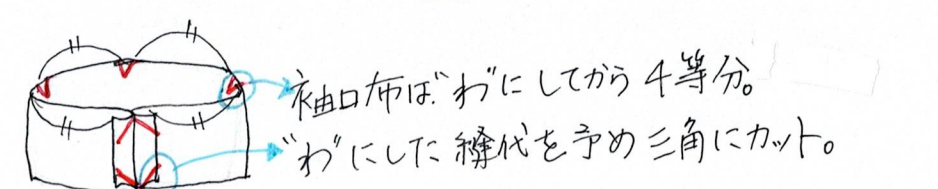 袖口布は"わ"にしてから4等分。
"わ"にした縫代を予め三角にカット。